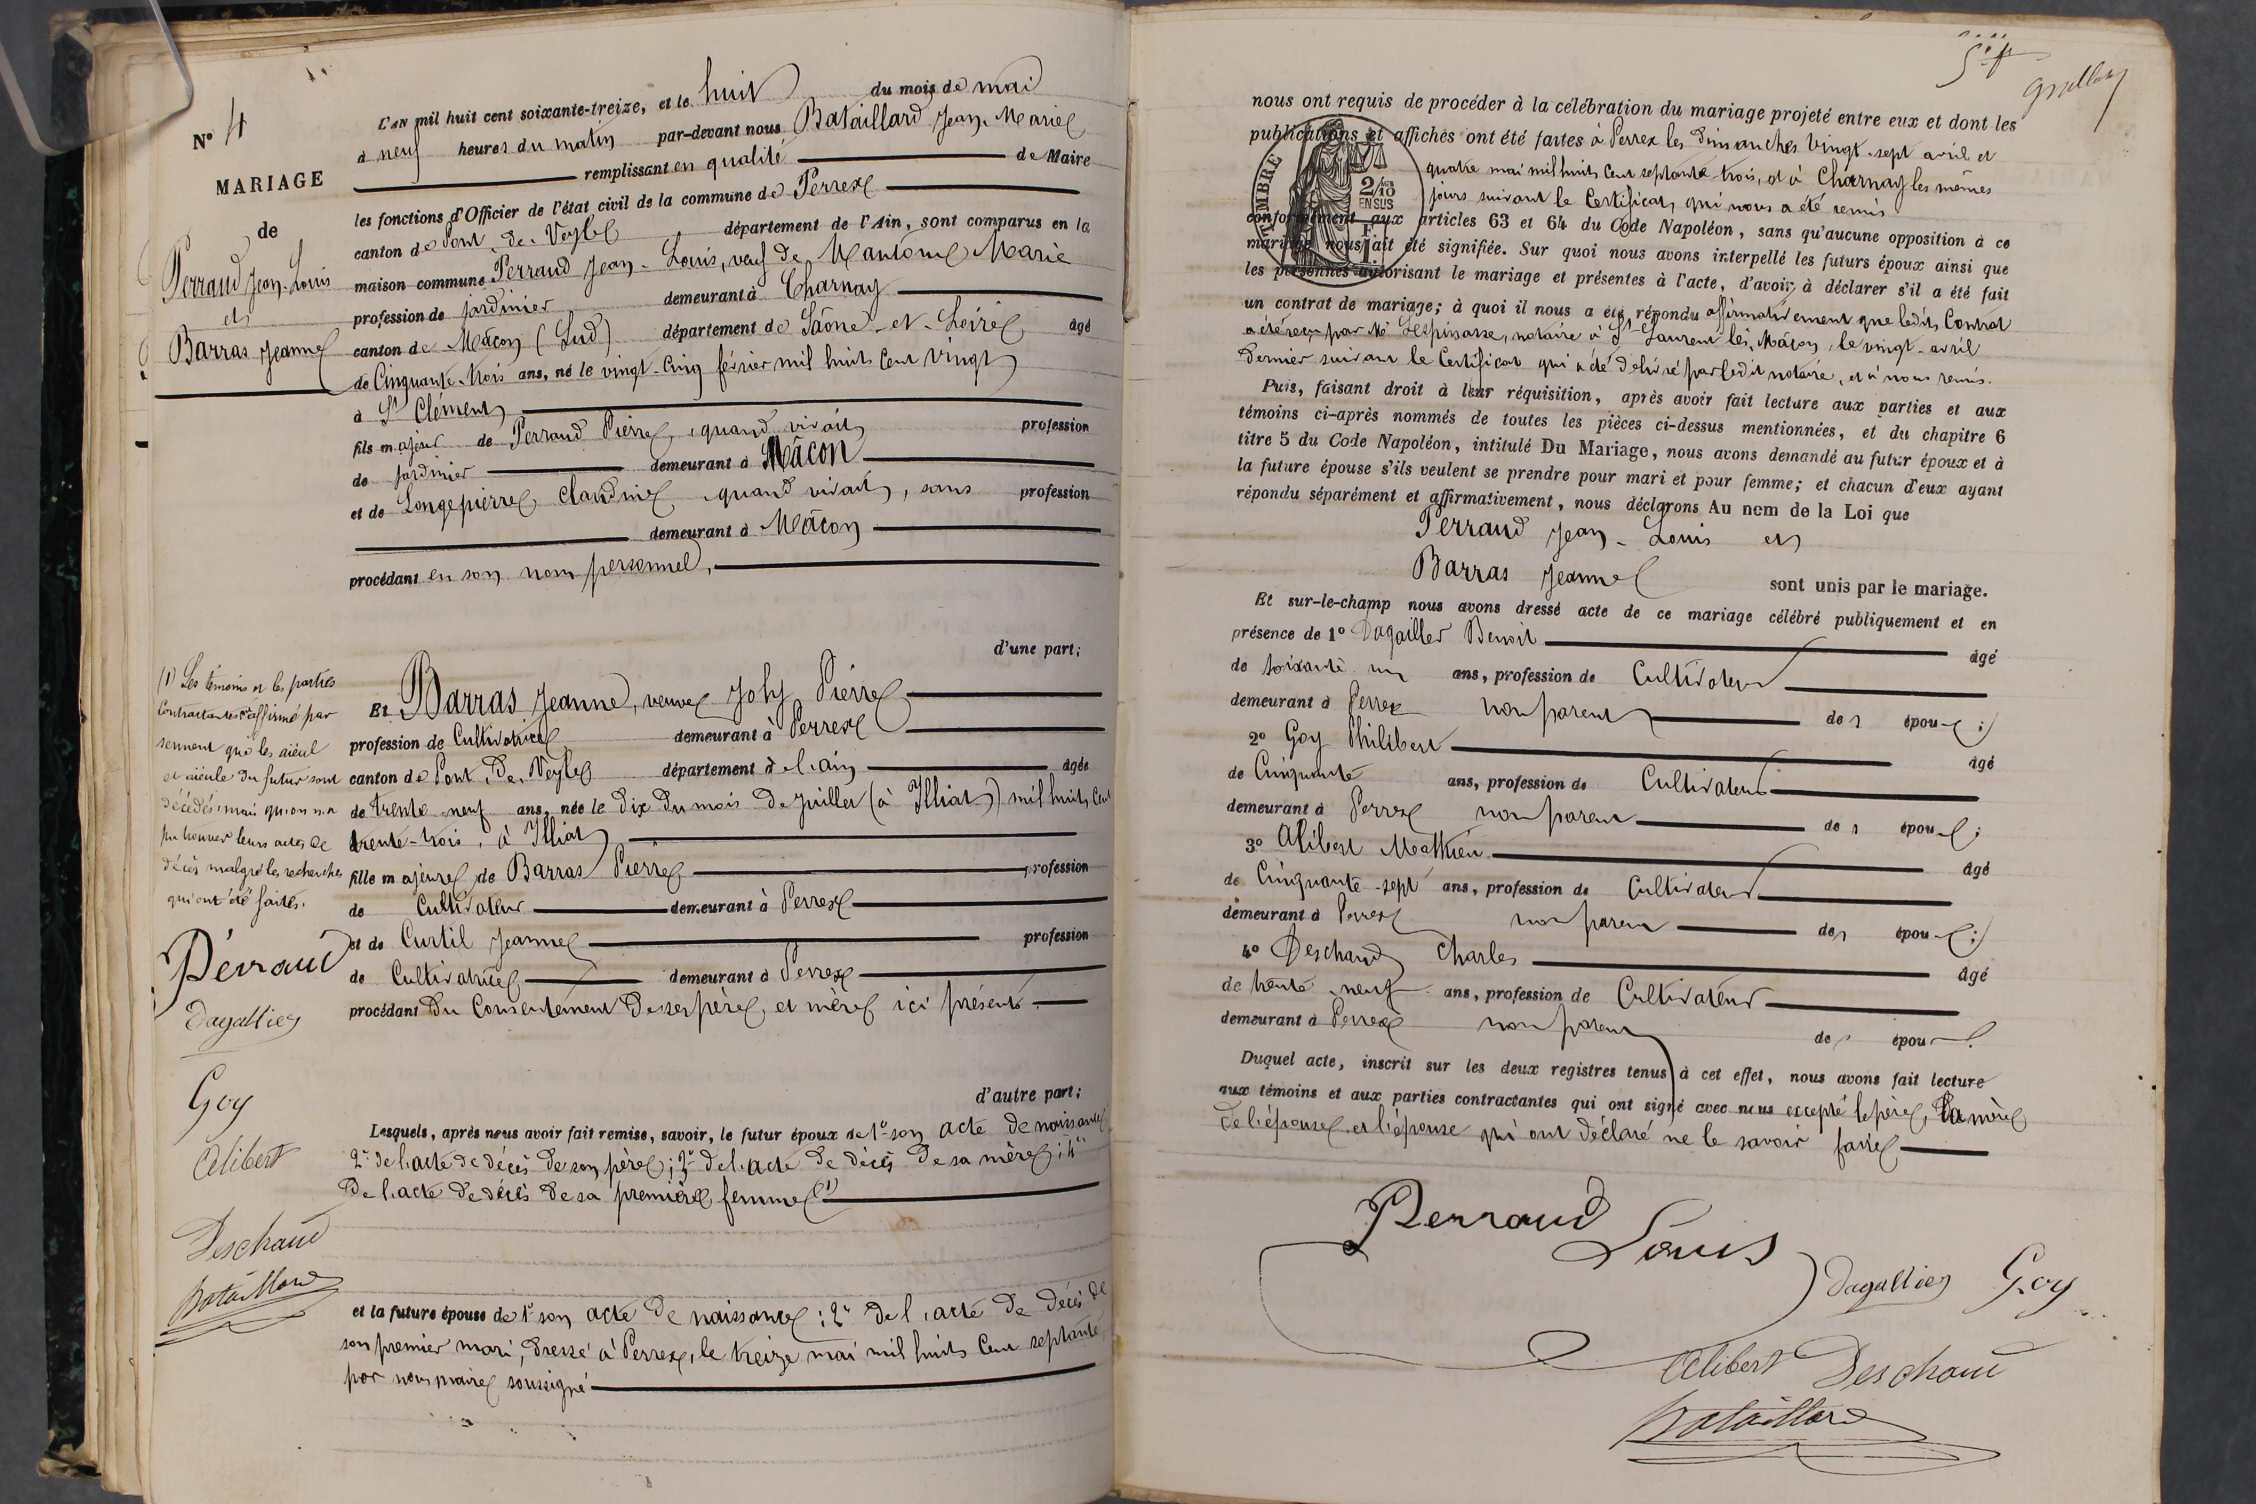 N° 4
MARIAGE
de
Perraud Jean-Louis
et
Barras Jeanne
L'AN mil huit cent soixante-treize, et le huit du mois de mai
à neuf heures du matin par-devant nous Bataillard Jean-Marie
remplissant en qualité de Maire
les fonctions d'Officier de l'état civil de la commune de Perrex
canton de Pont-de-Veyle département de l'Ain, sont comparus en la
maison commune Perraud Jean-Louis, veuf de Mantoux Marie
profession de jardinier demeurant à Charnay
canton de Mâcon (Sud) département de Saône-et-Loire âgé
de Cinquante-trois ans, né le vingt-cinq février mil huit cent vingt
à St Clément
fils majeur de Perraud Pierre, quand vivait, profession
de jardinier demeurant à Mâcon
et de Longepierre Claudine quand vivait, sans profession
demeurant à Mâcon
procédant en son nom personnel,
d'une part;
Et Barras Jeanne, veuve Joly Pierre
profession de Cultivatrice demeurant à Perrex
canton de Pont-de-Veyle département de l'ain âgée
de trente-neuf ans, née le dix du mois de juillet (à Illiat) mil huit cent
trente-trois, à Illiat
fille majeure de Barras Pierre profession
de Cultivateur demeurant à Perrex
et de Curtil Jeanne profession
de Cultivatrice demeurant à Perrex
procédant du Consentement de ses père et mère ici présents
d'autre part;
Lesquels, après nous avoir fait remise, savoir, le futur époux de 1° son acte de naissance
2° de l'acte de décès de son père; 3° de l'acte de décès de sa mère; 4°
de l'acte de décès de sa première femme (1)
et la future épouse de 1° son acte de naissance; 2° de l'acte de décès de
son premier mari, dressé à Perrex, le treize mai mil huit cent septante
par nous maire soussigné
(1) Les témoins et les parties
contractantes affirmé par
serment que les aïeul
et aïeule du futur sont
décédés mais qu'on n'a
pu trouver leurs actes de
décès malgré les recherches
qui ont été faites.
Perraud
Dagallier
Goy
Alibert
Deschaud
Bataillard
nous ont requis de procéder à la célébration du mariage projeté entre eux et dont les
publications et affiches ont été faites à Perrex les dimanches vingt-sept avril et
quatre mai mil huit cent septante-trois, et à Charnay les mêmes
jours suivant le Certificat qui nous a été remis
TIMBRE
2/10
EN SUS
F
1.
conformément aux articles 63 et 64 du Code Napoléon, sans qu'aucune opposition à ce
mariage nous ait été signifiée. Sur quoi nous avons interpellé les futurs époux ainsi que
les personnes autorisant le mariage et présentes à l'acte, d'avoir à déclarer s'il a été fait
un contrat de mariage; à quoi il nous a été répondu affirmativement que ledit Contrat
a été reçu par Me Lespinasse, notaire à St Laurent lès Mâcon, le vingt-avril
dernier suivant le Certificat qui a été délivré par ledit notaire, et à nous remis.
Puis, faisant droit à leur réquisition, après avoir fait lecture aux parties et aux
témoins ci-après nommés de toutes les pièces ci-dessus mentionnées, et du chapitre 6
titre 5 du Code Napoléon, intitulé Du Mariage, nous avons demandé au futur époux et à
la future épouse s'ils veulent se prendre pour mari et pour femme; et chacun d'eux ayant
répondu séparément et affirmativement, nous déclarons Au nom de la Loi que
Perraud Jean-Louis et
Barras Jeanne
sont unis par le mariage.
Et sur-le-champ nous avons dressé acte de ce mariage célébré publiquement et en
présence de 1° Dagallier Benoit âgé
de soixante un ans, profession de Cultivateur
demeurant à Perrex non parent des époux;
2° Goy Philibert âgé
de Cinquante ans, profession de Cultivateur
demeurant à Perrex non parent des époux;
3° Alibert Mathieu âgé
de Cinquante-sept ans, profession de Cultivateur
demeurant à Perrex non parent des époux;
4° Deschaud Charles âgé
de trente-neuf ans, profession de Cultivateur
demeurant à Perrex non parent des époux.
Duquel acte, inscrit sur les deux registres tenus à cet effet, nous avons fait lecture
aux témoins et aux parties contractantes qui ont signé avec nous excepté le père, la mère
de l'épouse et l'épouse qui ont déclaré ne le savoir faire
Perraud
Louis
Dagallier Goy
Alibert Deschaud
Bataillard